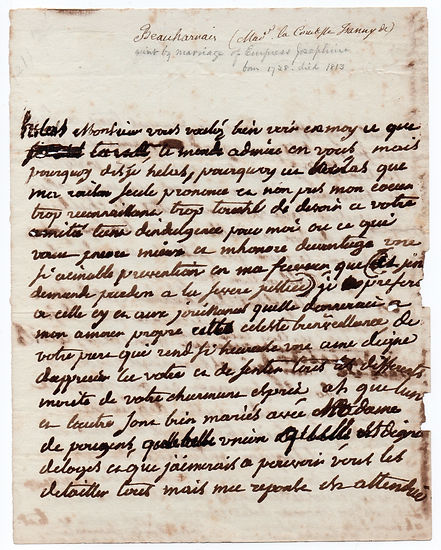 Beauharnais (Mad.e la Comtesse Fanny de)
aunt by marriage of Empress Josephine
born 1738. died 1813
helas Monsieur vous voulez bien voir en moy ce que
le monde admire en vous, mais
pourquoy dis je helas, pourquoy ce helas que
ma raison seule prononce et non pas mon coeur
trop reconnaissant trop touché de devoir a votre
amitié tant dindulgence pour moi ou ce qui
vous prouve mieux et mhonore davantage une
si aimable prevention en ma faveur que (
demande pardon a la severe justice) je prefere
a celle cy et aux jouissances quelle donnerait a
mon amour propre cette celeste bienveillance de
votre part qui rend si heureuse une ame digne
daprecier la votre et de sentir tous les differents
merite de votre charmant esprit ah que lun
et lautre sont bien mariés avec Madame
de pougens, quelle belle union et digne
deloges et que jaimerais a pouvoir vous les
detailler tous mais ma reponse est attendue